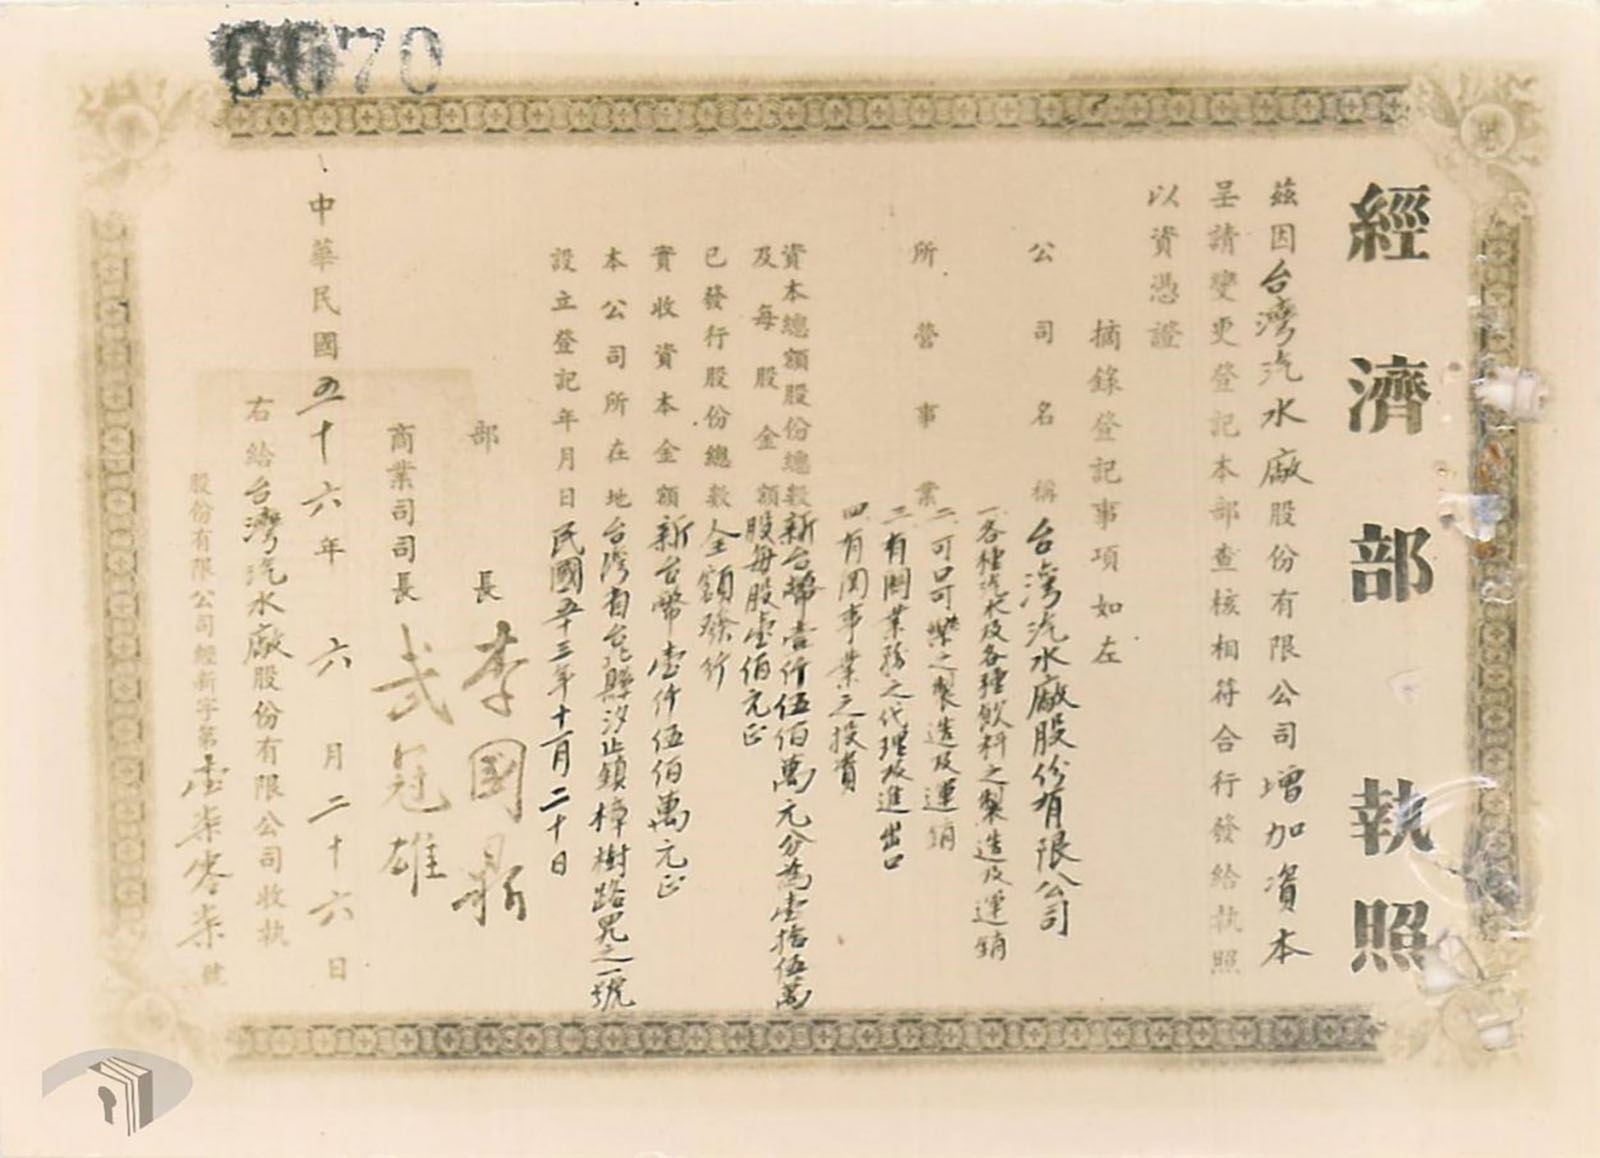 0670
經濟部執照
茲因台灣汽水廠股份有限公司增加資本
呈請變更登記本部查核相符合行發給執照
以資憑證
摘錄登記事項如左
公司名稱 台灣汽水廠股份有限公司
所營事業 一各種汽水及各種飲料之製造及運銷
二可口可樂之製造及運銷
三有關業務之代理及進出口
四有關事業之投資
資本總額股份總數及每股金額 新台幣壹仟伍佰萬元分為壹拾伍萬
股每股壹佰元正
已發行股份總數 全額發行
實收資本金額 新台幣壹仟伍佰萬元正
本公司所在地 台灣省台北縣汐止鎮樟樹路 之一號
設立登記年月日 民國五十三年十一月二十日
部長 李國鼎
商業司司長 武冠雄
中華民國五十六年六月二十六日
右給台灣汽水廠股份有限公司收執
股份有限公司經新字第壹柒零柒號